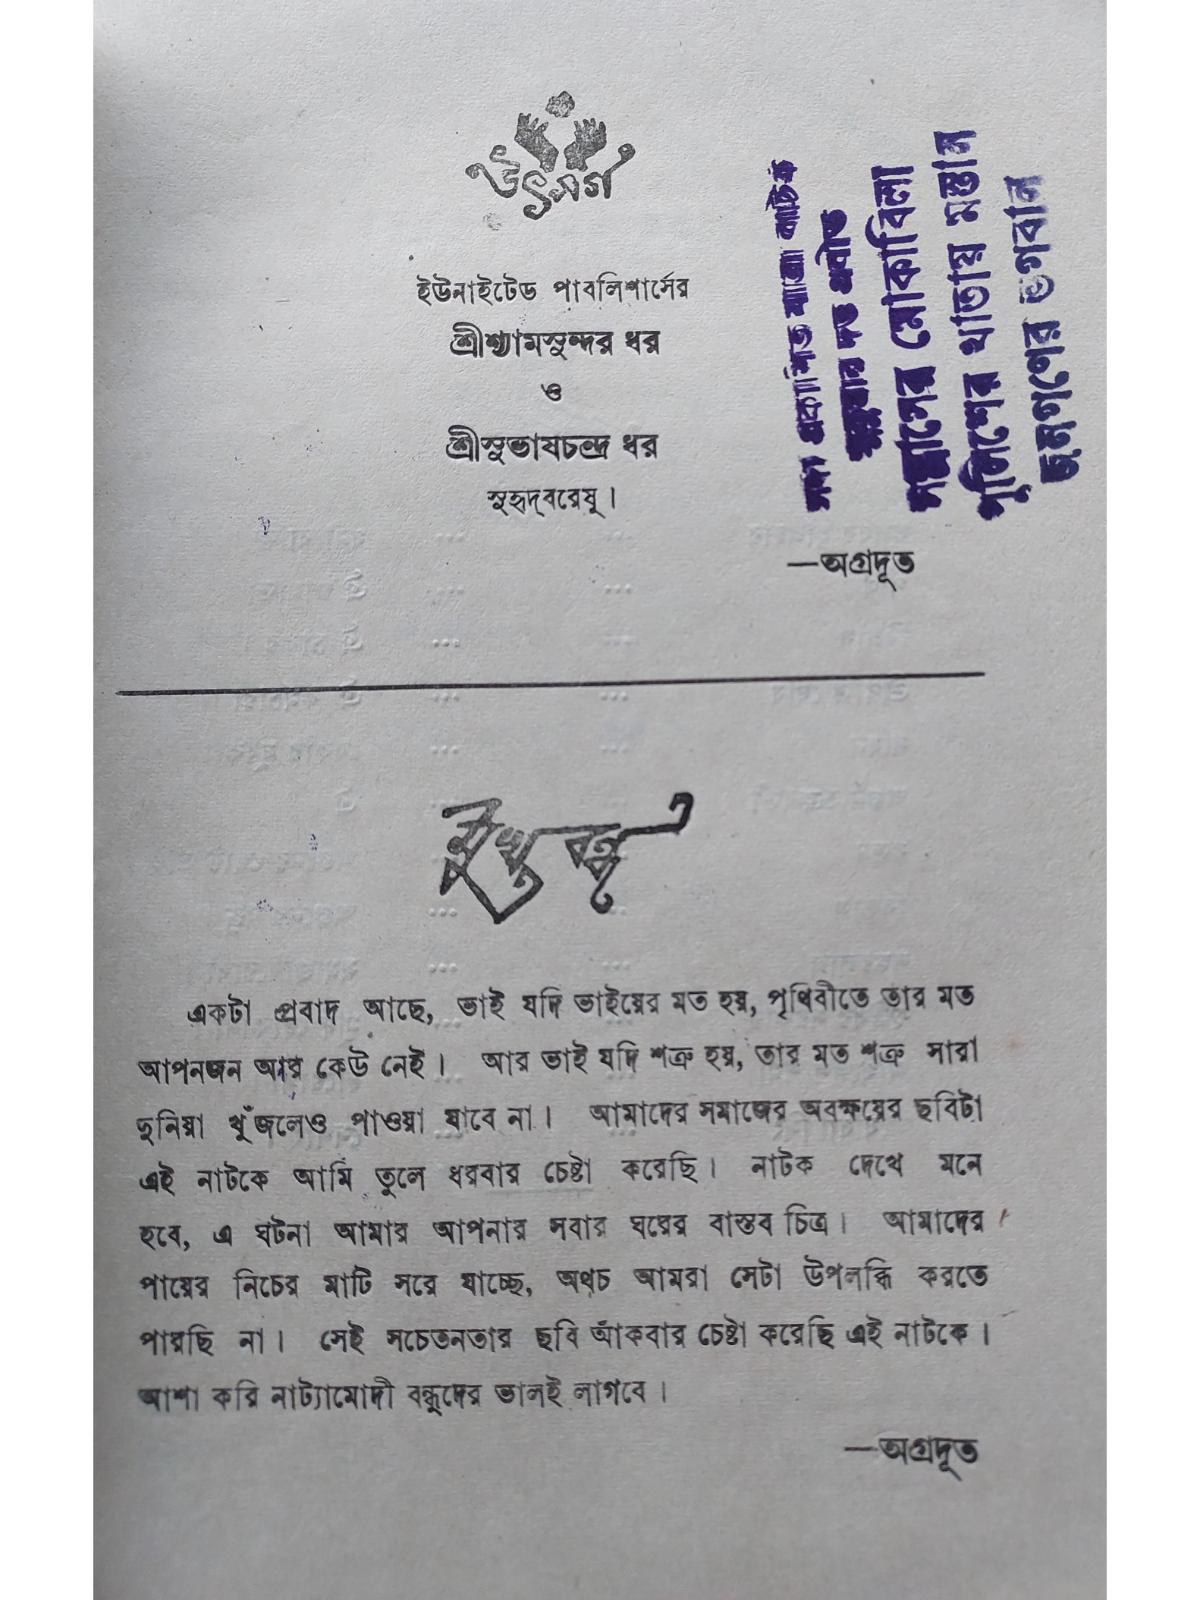 উৎসর্গ
ইউনাইটেড পাবলিশার্সের
শ্রীশ্যামসুন্দর ধর
ও
শ্রীসুভাষচন্দ্র ধর
সুহৃদ্‌বরেষু।
—অগ্রদূত
সদ্য প্রকাশিত যাত্রা নাটক
সুকুমার দত্ত প্রণীত
সন্ত্রাসের মোকাবিলা
পুলিশের খাতায় মস্তান
জনগণের ভগবান
মুখবন্ধ
একটা প্রবাদ আছে, ভাই যদি ভাইয়ের মত হয়, পৃথিবীতে তার মত
আপনজন আর কেউ নেই। আর ভাই যদি শত্রু হয়, তার মত শত্রু সারা
দুনিয়া খুঁজলেও পাওয়া যাবে না। আমাদের সমাজের অবক্ষয়ের ছবিটা
এই নাটকে আমি তুলে ধরবার চেষ্টা করেছি। নাটক দেখে মনে
হবে, এ ঘটনা আমার আপনার সবার ঘরের বাস্তব চিত্র। আমাদের
পায়ের নিচের মাটি সরে যাচ্ছে, অথচ আমরা সেটা উপলব্ধি করতে
পারছি না। সেই সচেতনতার ছবি আঁকবার চেষ্টা করেছি এই নাটকে।
আশা করি নাট্যামোদী বন্ধুদের ভালই লাগবে।
—অগ্রদূত